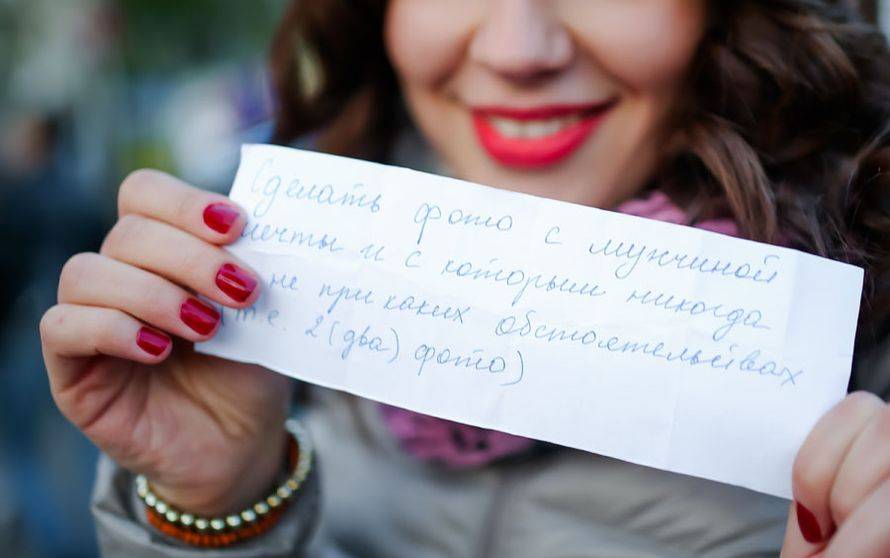 Сделать фото с мужчиной
мечты и с которым никогда
не при каких обстоятельствах
(т.е. 2 (два) фото)